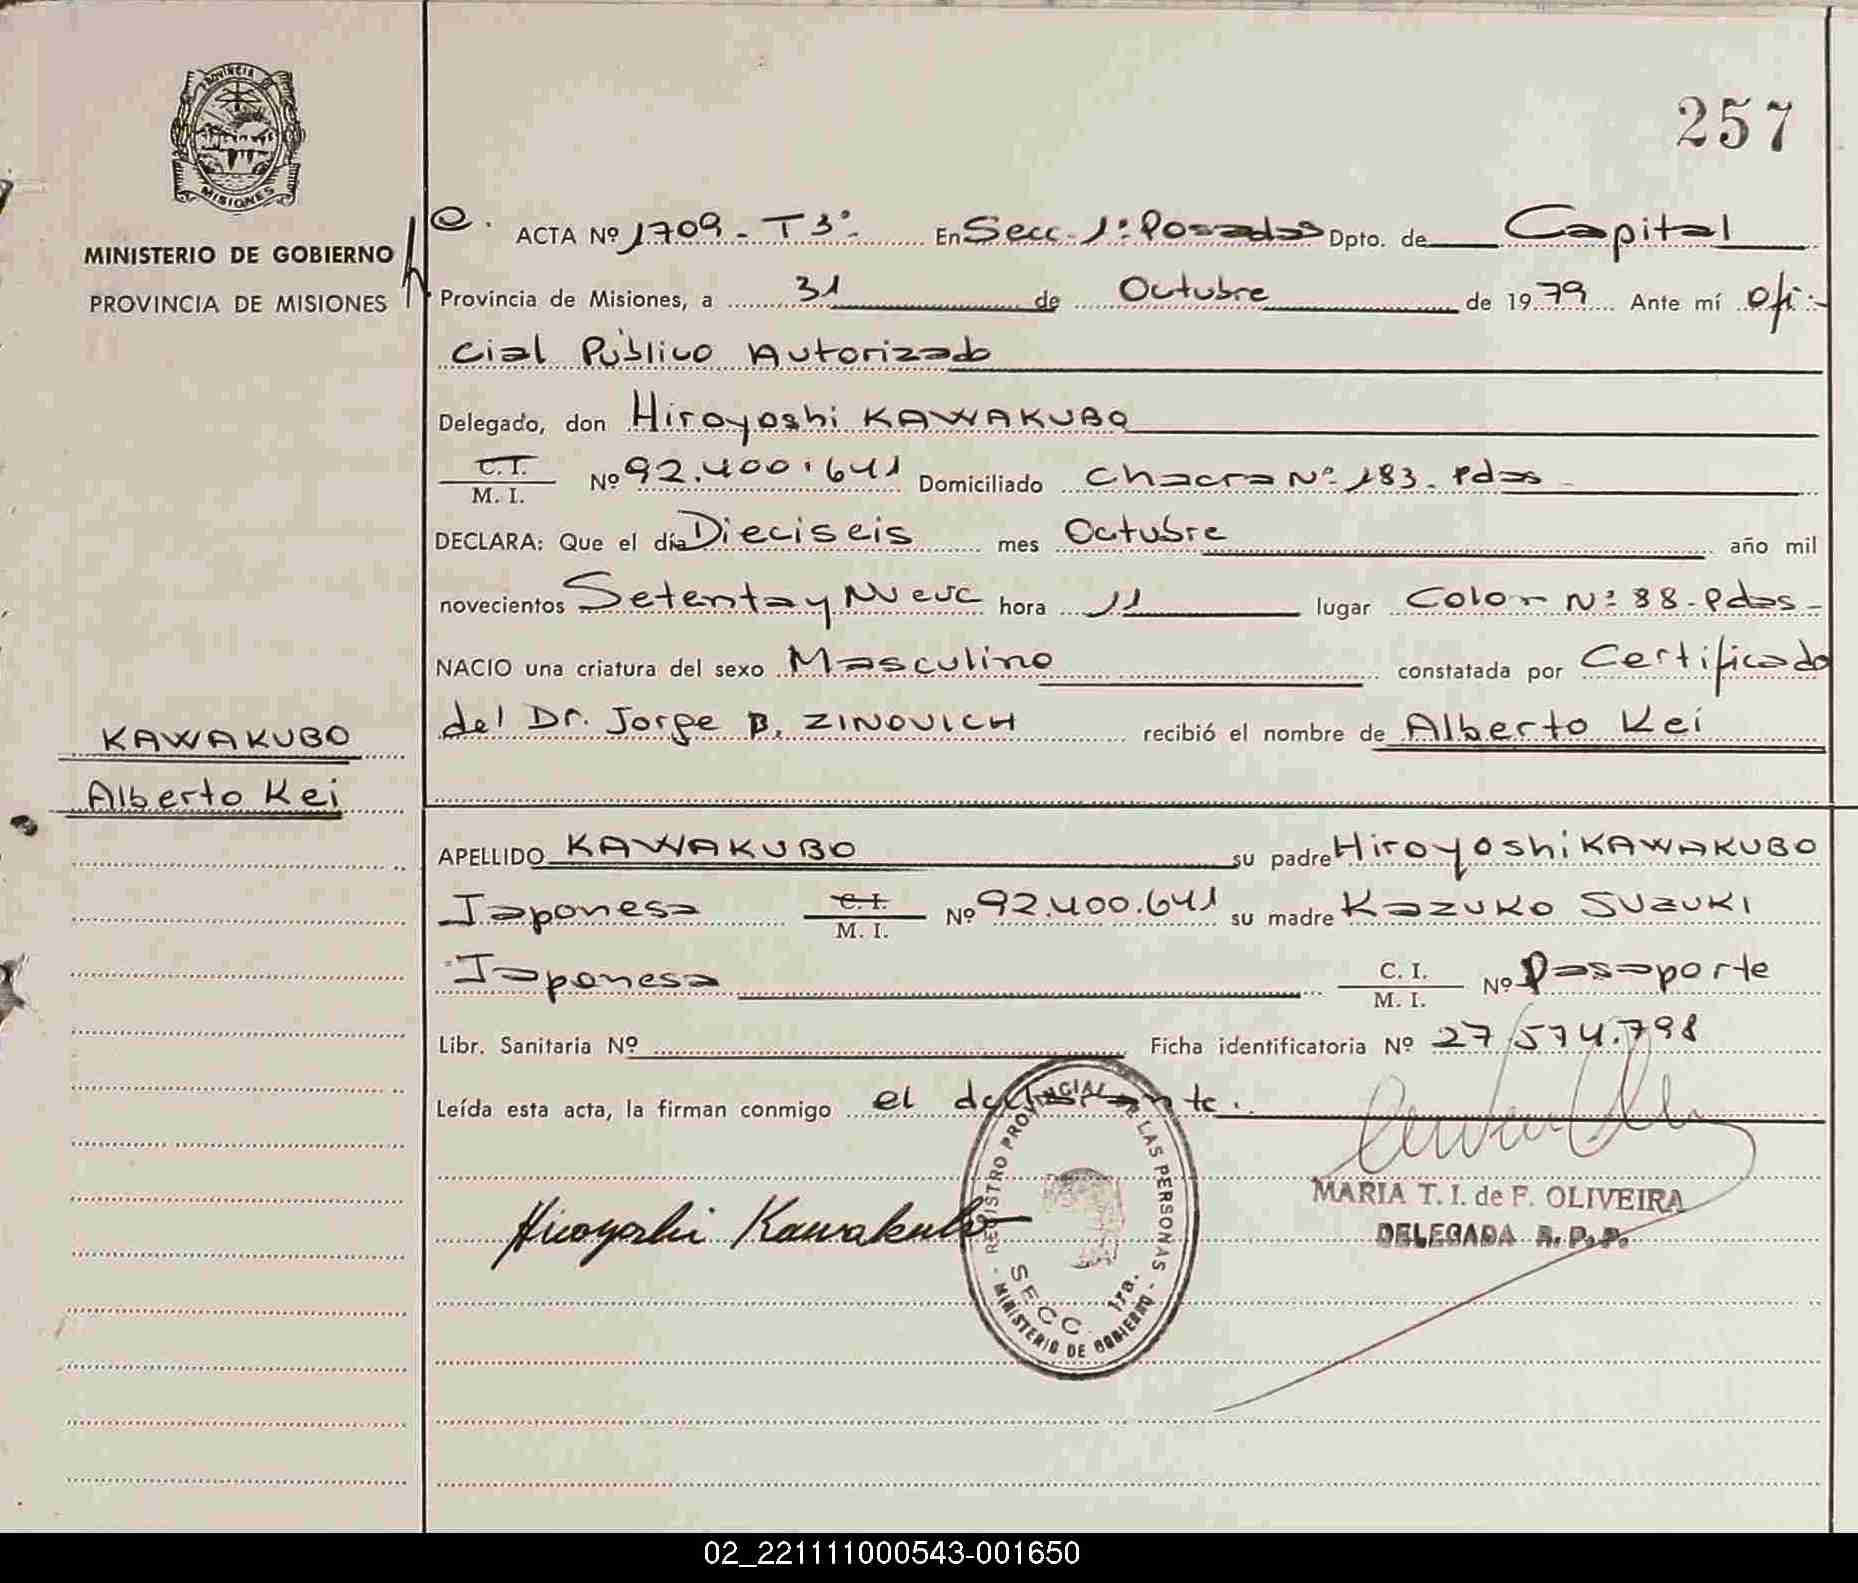 PROVINCIA
MISIONES
MINISTERIO DE GOBIERNO
PROVINCIA DE MISIONES
257
ACTA Nº 1709 - T 3º En Secc. 1ª Posadas Dpto. de Capital
Provincia de Misiones, a 31 de Octubre de 1979 Ante mí Ofi-
cial Público Autorizado
Delegado, don Hiroyoshi KAWAKUBO
C. I. / M. I. Nº 92.400.641 Domiciliado Chacra Nº 183. Pdas
DECLARA: Que el día Dieciseis mes Octubre año mil
novecientos Setenta y Nueve hora 11 lugar Colon Nº 88 - Pdas -
NACIO una criatura del sexo Masculino constatada por Certificado
del Dr. Jorge B. ZINOVICH recibió el nombre de Alberto Kei
KAWAKUBO
Alberto Kei
APELLIDO KAWAKUBO su padre Hiroyoshi KAWAKUBO
Japonesa C. I. / M. I. Nº 92.400.641 su madre Kazuko SUZUKI
Japonesa C. I. / M. I. Nº Pasaporte
Libr. Sanitaria Nº Ficha identificatoria Nº 27.574.798
Leída esta acta, la firman conmigo el declarante.
Hiroyoshi Kawakubo
REGISTRO PROVINCIAL DE LAS PERSONAS
SECC. 1ra.
MINISTERIO DE GOBIERNO
MARIA T. I. de F. OLIVEIRA
DELEGADA R. P. P.
02_221111000543-001650